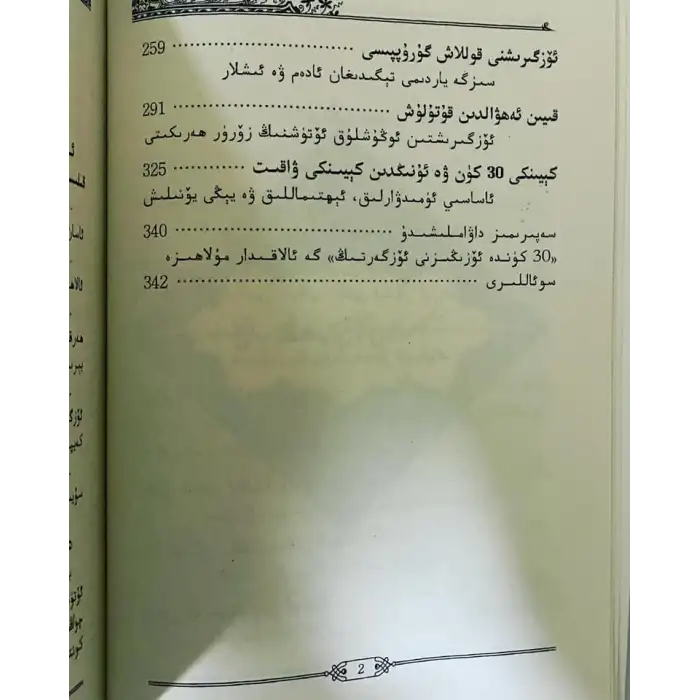 ئۆزگىرىشنى قوللاش گۇرۇپپىسى ······························ 259
سىزگە ياردىمى تېگىدىغان ئادەم ۋە ئىشلار
قىيىن ئەھۋالدىن قۇتۇلۇش ···································· 291
ئۆزگىرىشتىن ئوڭۇشلۇق ئۆتۈشنىڭ زۆرۈر ھەرىكىتى
كېيىنكى 30 كۈن ۋە ئۇنىڭدىن كېيىنكى ۋاقىت ············ 325
ئاساسىي ئۈمىدۋارلىق، ئېھتىماللىق ۋە يېڭى يۆنىلىش
سەپىرىمىز داۋاملىشىدۇ ···································· 340
«30 كۈندە ئۆزىڭىزنى ئۆزگەرتىڭ» گە ئالاقىدار مۇلاھىزە
سوئاللىرى ·················································· 342
2